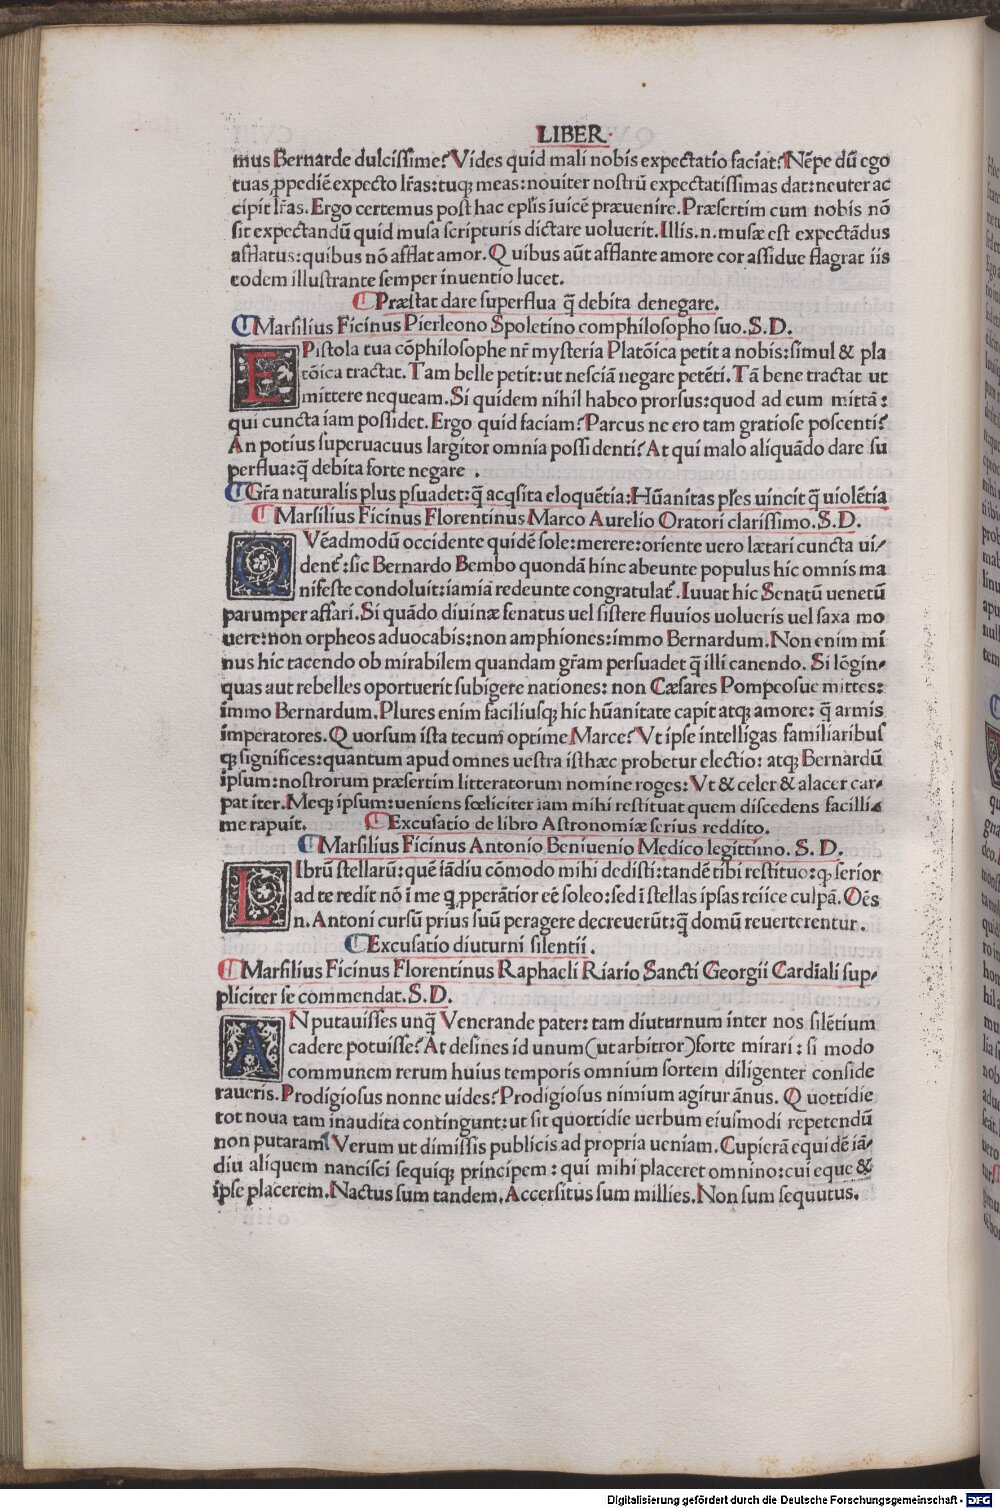 LIBER.
mus Bernarde dulcissime? Vides quid mali nobis expectatio faciat? Nēpe dū ego
tuas ꝓpediē expecto lr̄as: tuqꝫ meas: nouiter nostrū expectatissimas dat: neuter ac
cipit lr̄as. Ergo certemus post hac ep̄lis īuicē præuenire. Præsertim cum nobis nō
sit expectandū quid musa scripturis dictare uoluerit. Illis .n. musæ est expectādus
afflatus: quibus nō afflat amor. Quibus aūt afflante amore cor assidue flagrat iis
eodem illustrante semper inuentio lucet.
Præstat dare superflua q̄ debita denegare.
Marsilius Ficinus Pierleono Spoletino comphilosopho suo. S. D.
EPistola tua cōphilosophe nr̄ mysteria Platōica petit a nobis: simul & pla
tōica tractat. Tam belle petit: ut nesciā negare petēti. Tā bene tractat ut
mittere nequeam. Si quidem nihil habeo prorsus: quod ad eum mittā:
qui cuncta iam possidet. Ergo quid faciam? Parcus ne ero tam gratiose poscenti?
An potius superuacuus largitor omnia possidenti? At qui malo aliquādo dare su
perflua: q̄ debita forte negare .
Gr̄a naturalis plus ꝑsuadet: q̄ acqsita eloquētia: Hūanitas pl̄es uincit q̄ uiolētia
Marsilius Ficinus Florentinus Marco Aurelio Oratori clarissimo. S. D.
QVēadmodū occidente quidē sole: merere: oriente uero lætari cuncta ui/
dent̄: sic Bernardo Bembo quondā hinc abeunte populus hic omnis ma
nifeste condoluit: iamiā redeunte congratulat̄. Iuuat hic Senatū uenetū
parumper affari. Si quādo diuinæ senatus uel sistere fluuios uolueris uel saxa mo
uere: non orpheos aduocabis: non amphiones: immo Bernardum. Non enim mi
nus hic tacendo ob mirabilem quandam gr̄am persuadet q̄ illi canendo. Si lōgin-
quas aut rebelles oportuerit subigere nationes: non Cæsares Pompeosue mittes:
immo Bernardum. Plures enim faciliusqꝫ hic hūanitate capit atqꝫ amore: q̄ armis
imperatores. Quorsum ista tecum optime Marce? Vt ipse intelligas familiaribus
qꝫ significes: quantum apud omnes uestra isthæc probetur electio: atqꝫ Bernardū
ipsum: nostrorum præsertim litteratorum nomine roges: Vt & celer & alacer car-
pat iter. Meqꝫ ipsum: ueniens fœliciter iam mihi restituat quem discedens facilli-
me rapuit. Excusatio de libro Astronomiæ serius reddito.
Marsilius Ficinus Antonio Beniuenio Medico legittimo. S. D.
LIbrū stellarū: quē iādiu cōmodo mihi dedisti: tandē tibi restituo: qꝫ serior
ad te redit nō ī me q ꝓperātior eē soleo: sed ī stellas ipsas reiice culpā. Oēs
.n. Antoni cursū prius suū peragere decreuerūt: q̄ domū reuerterentur.
Excusatio diuturni silentii.
Marsilius Ficinus Florentinus Raphaeli Riario Sancti Georgii Cardiali sup-
pliciter se commendat. S. D.
AN putauisses unq̄ Venerande pater: tam diuturnum inter nos silētium
cadere potuisse? At desines id unum (ut arbitror) forte mirari: si modo
communem rerum huius temporis omnium sortem diligenter conside
raueris. Prodigiosus nonne uides? Prodigiosus nimium agitur ānus. Quottidie
tot noua tam inaudita contingunt: ut sit quottidie uerbum eiusmodi repetendū
non putaram. Verum ut dimissis publicis ad propria ueniam. Cupierā equidē iā-
diu aliquem nancisci sequiqꝫ principem: qui mihi placeret omnino: cui eque &
ipse placerem. Nactus sum tandem. Accersitus sum millies. Non sum sequutus.
Digitalisierung gefördert durch die Deutsche Forschungsgemeinschaft - DFG